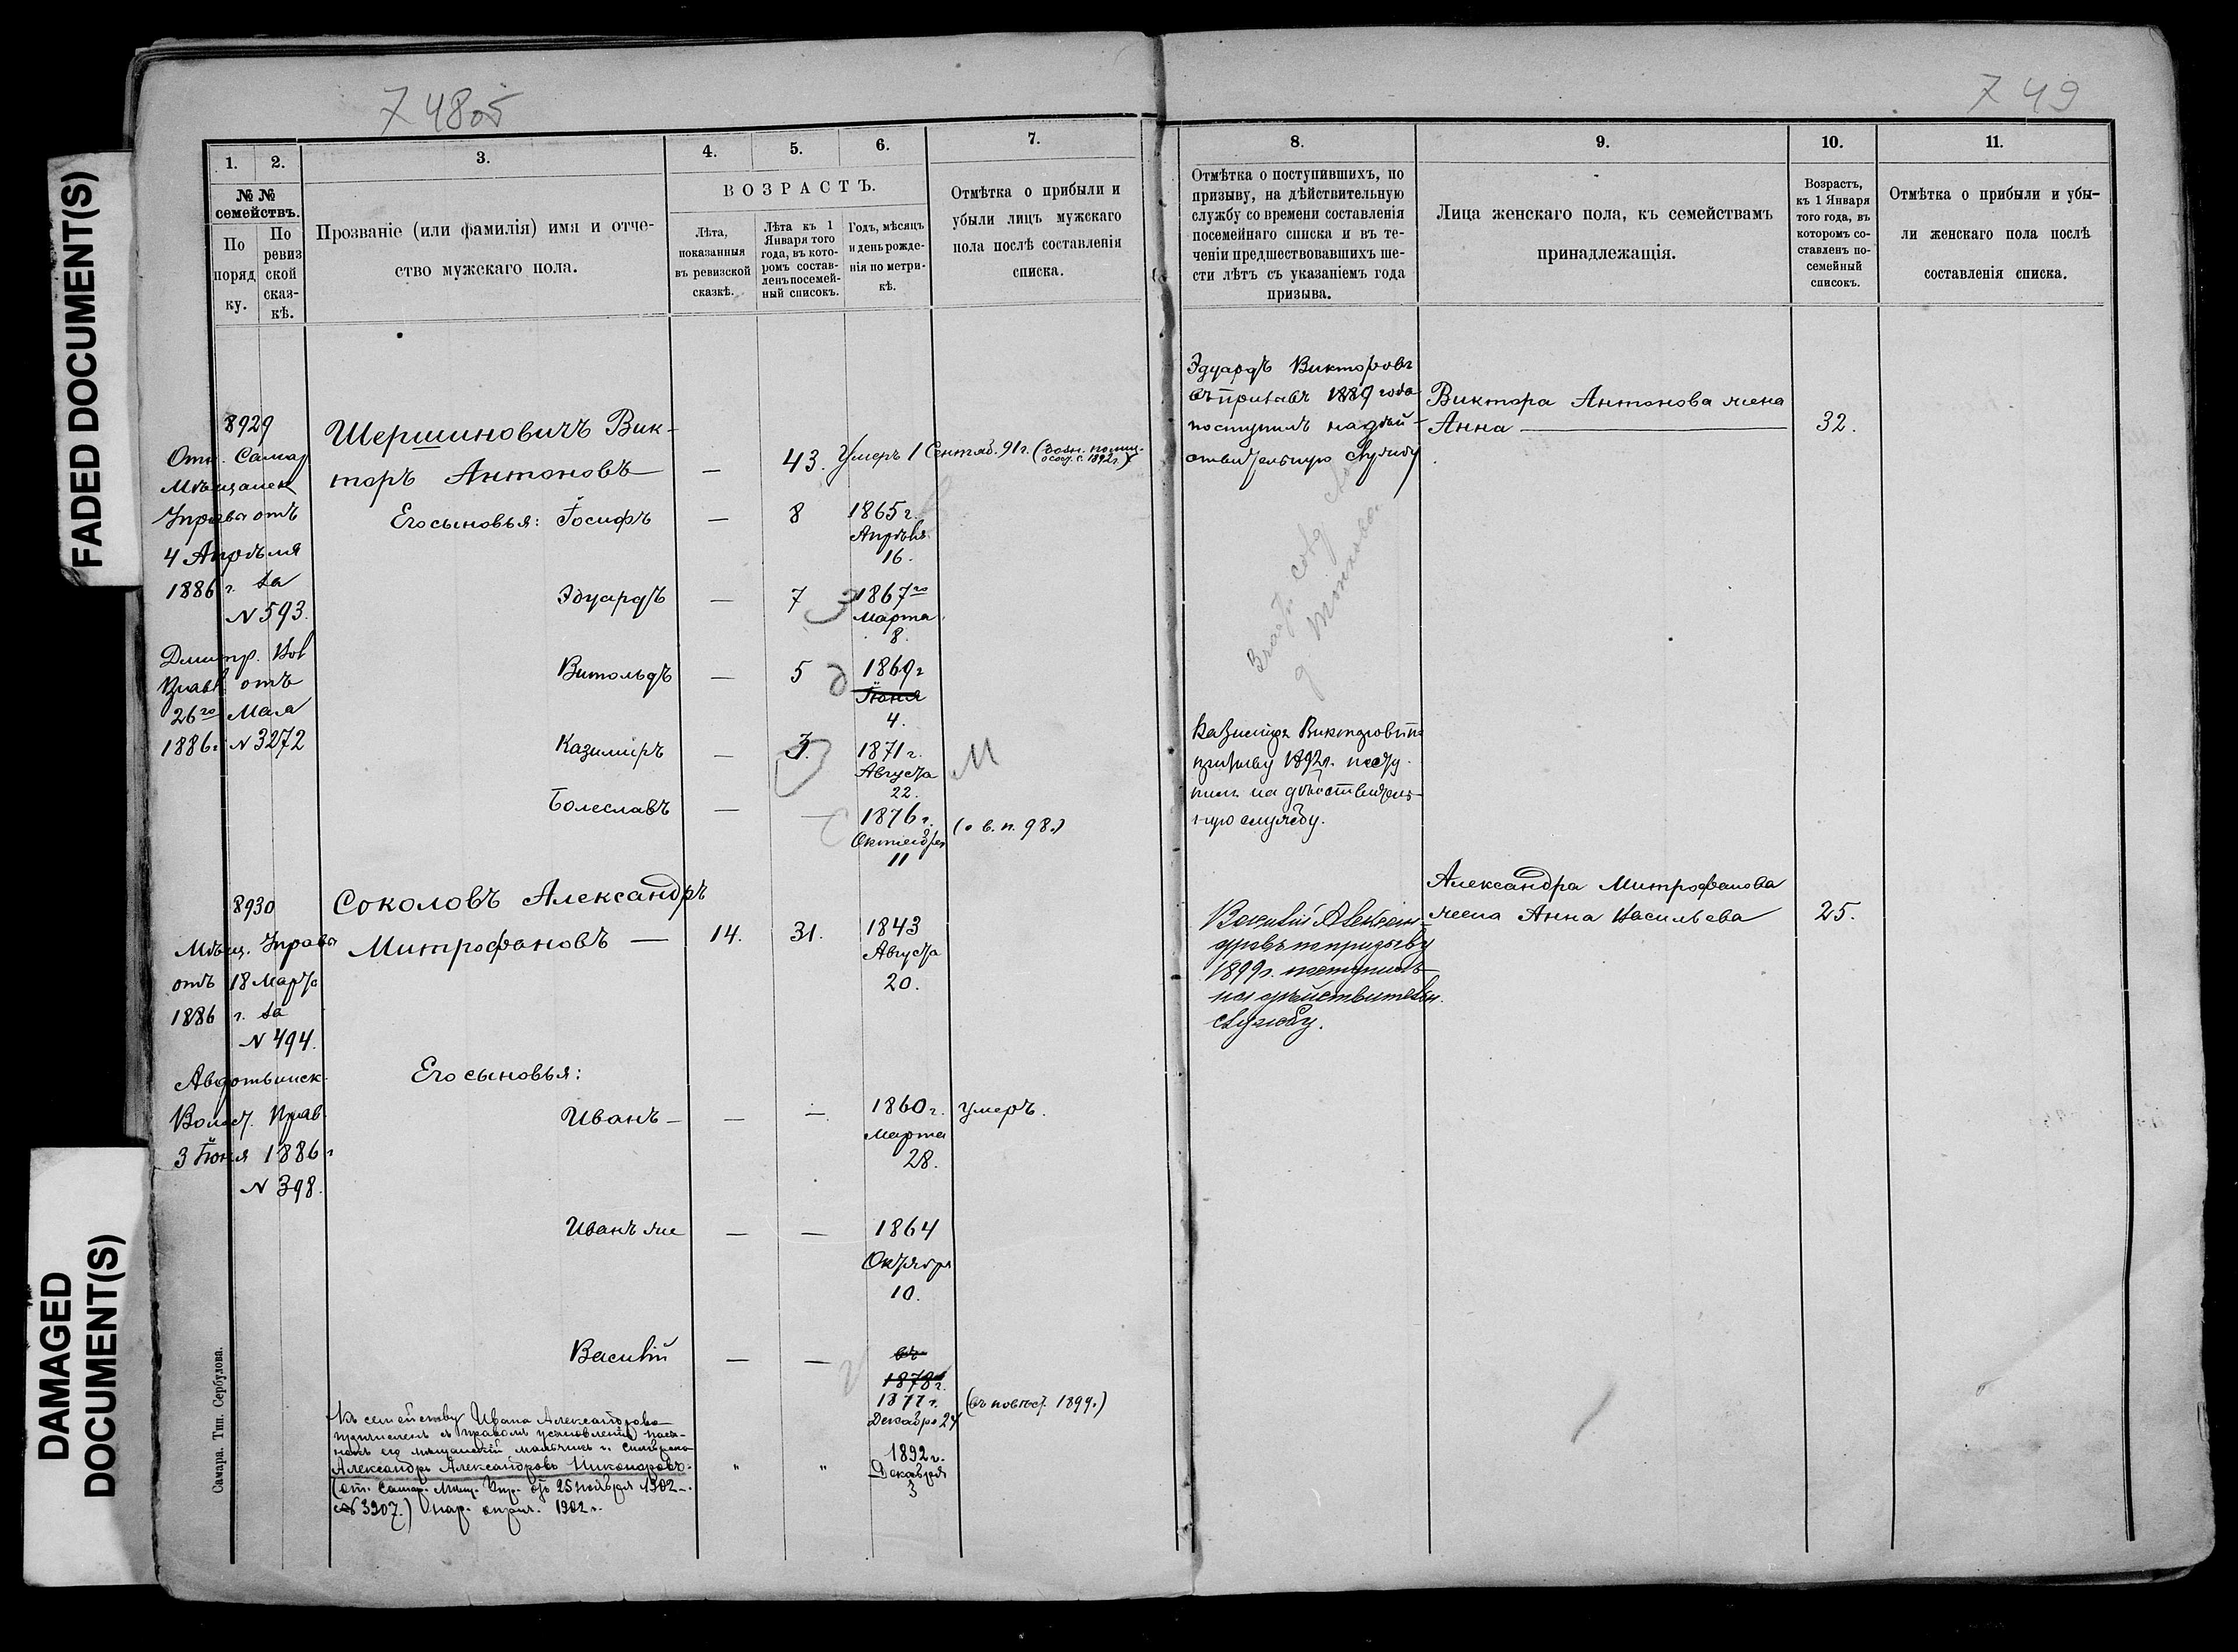 FADED DOCUMENT(S)
DAMAGED
DOCUMENT(S)
748об
749
1.
2.
3.
4.
5.
6.
7.
№ №
семействъ.
По
поряд
ку.
По
ревиз
ской
сказ-
кѣ.
Прозваніе (или фамилія) имя и отче-
ство мужскаго пола.
ВОЗРАСТЪ.
Лѣта,
показанныя
въ ревизской
сказкѣ.
Лѣта къ 1
Января того
года, въ кото-
ромъ состав-
ленъ посемей-
ный списокъ.
Годъ, мѣсяцъ
и день рожде-
нія по метри-
кѣ.
Отмѣтка о прибыли и
убыли лицъ мужскаго
пола послѣ составленія
списка.
8929
Отн. Самар
Мѣщанск
Управы отъ
4 Апрѣля
1886 г. за
N 593.
Дмитр. Вол
Правл отъ
26го Мая
1886г. N 3272
Шершиновичъ Вик-
торъ Антоновъ —
—
43.
Умеръ 1 Сентяб. 91г.
Его сыновья: Іосифъ
—
8
1865 г.
Апрѣля
16.
Эдуардъ
—
7
1867го
Марта
8.
Витольдъ
—
5
1869г
Іюня
4.
Казиміръ
—
3.
1871 г.
Августа
22.
М
Болеславъ
—
—
1876 г.
Октября
11
(о в. п. 98.)
8930
Мѣщ. Управы
отъ 18 Марта
1886 г. за
N 494.
Авдотьинск.
Волост. Прав.
3 Іюня 1886 г
N 398.
Соколовъ Александръ
Митрофановъ —
14.
31.
1843
Августа
20.
Его сыновья:
Иванъ —
—
—
1860 г.
Марта
28.
Умеръ.
Иванъ же
—
—
1864
Октября
10.
Василій
—
—
въ
1878 г.
1877 г.
Декабря 24
(въ повѣст. 1899.)
Къ семейству Ивана Александрова
причисленъ съ правомъ усыновленія
его мѣщанскій мальчикъ г. Симбирска
Александръ Александровъ Никоноровъ.
(от. Самар. Мѣщ. Упр. отъ 25 ноября 1902
N 3907.) 1902 г.
"
"
1892 г.
Декабря
3
Самара. Тип. Сербулова.
8.
9.
10.
11.
Отмѣтка о поступившихъ, по
призыву, на дѣйствительную
службу со времени составленія
посемейнаго списка и въ те-
ченіи предшествовавшихъ ше-
сти лѣтъ съ указаніемъ года
призыва.
Лица женскаго пола, къ семействамъ
принадлежащія.
Возрастъ,
къ 1 Января
того года, въ
которомъ со-
ставленъ по-
семейный
списокъ.
Отмѣтка о прибыли и убы-
ли женскаго пола послѣ
составленія списка.
Эдуардъ Викторовъ
въ призывъ 1889 года
поступилъ на дѣй-
ствительную службу
Виктора Антонова жена
Анна —
32.
Казиміръ Викторовъ по
призыву 1892г. посту
пилъ на дѣйствитель-
ную службу.
Василій Алексан-
дровъ по призыву
1899г. поступилъ
на дѣйствительн.
службу.
Александра Митрофанова
жена Анна Васильева
25.